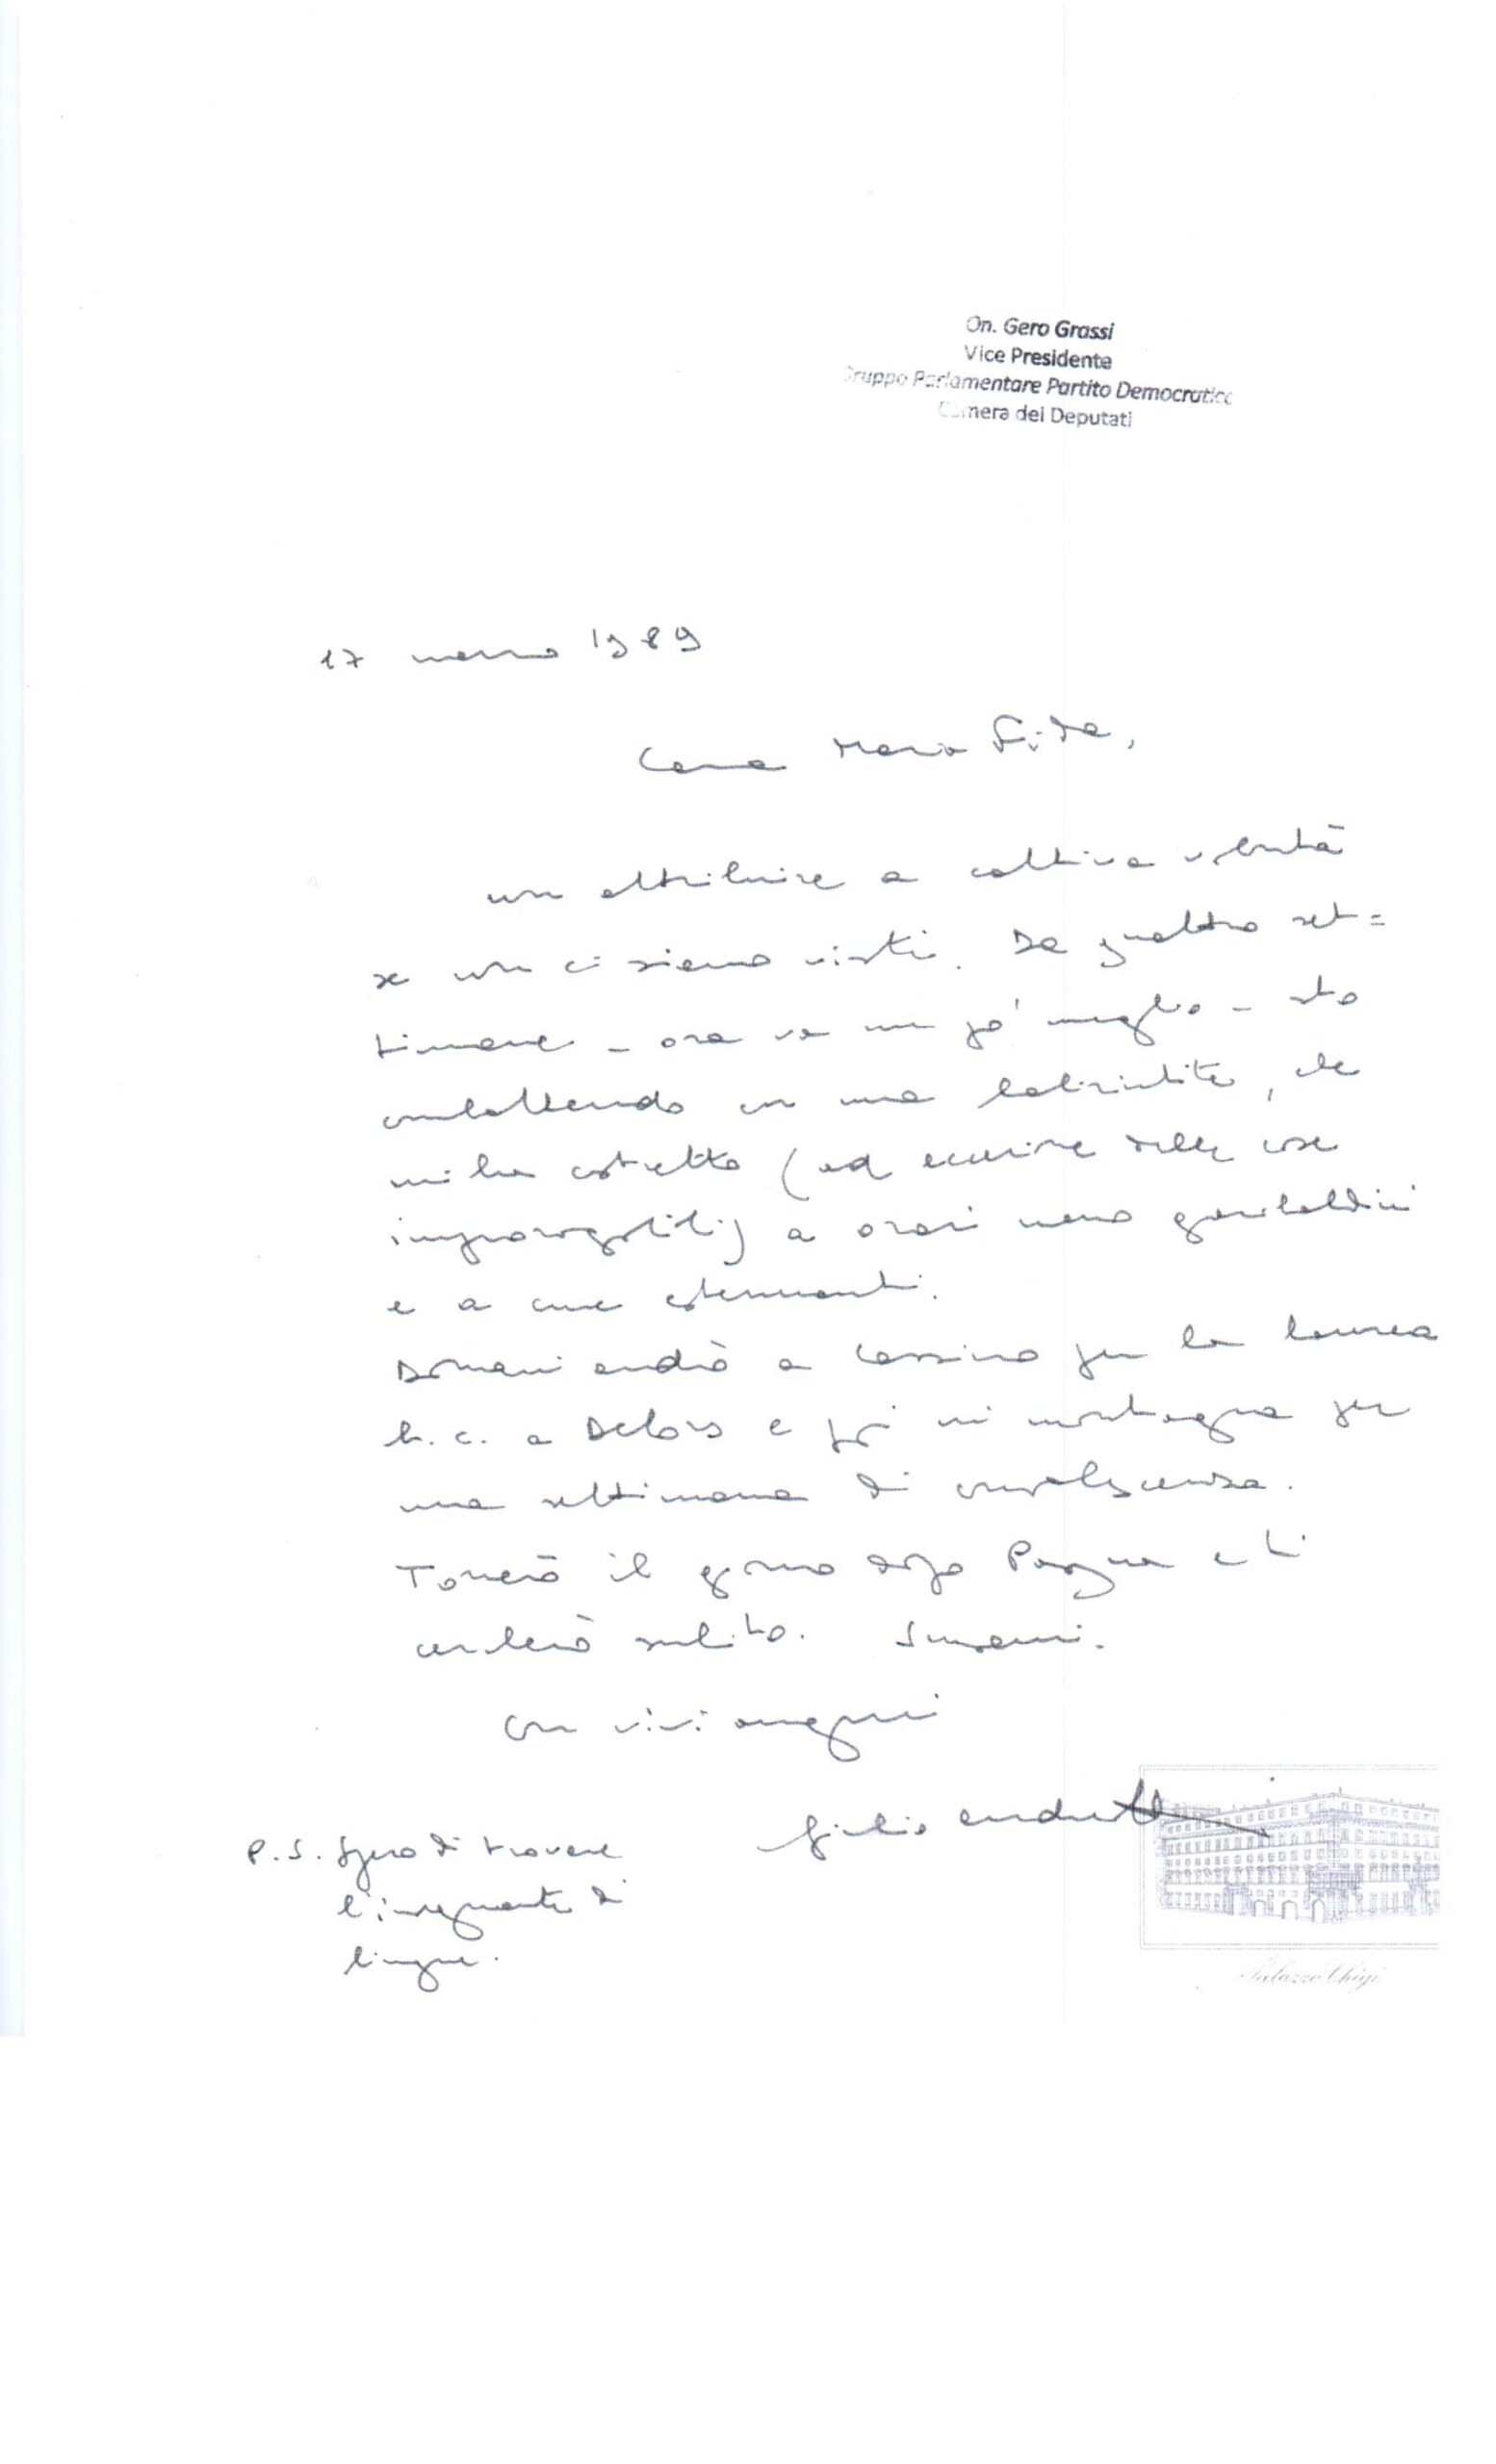 On. Gero Grassi
Vice Presidente
Gruppo Parlamentare Partito Democratico
Camera dei Deputati
17 marzo 1989
Cara Maria Fida,
non attribuire a cattiva volontà
se non ci siamo visti. Da quattro set=
timane - ora va un po' meglio - sto
combattendo con una labirintite, che
mi ha costretto (ad eccezione delle cose
improrogabili) a orari meno garibaldini
e a cure estenuanti.
Domani andrò a Cassino per la laurea
h. c. a Delors e poi in montagna per
una settimana di convalescenza.
Tornerò il giorno dopo Pasqua e ti
cercherò subito. Scusami.
Con vivi auguri
Giulio Andreotti
P.S. Spero di trovare
l'insegnante di
lingue.
Palazzo Chigi